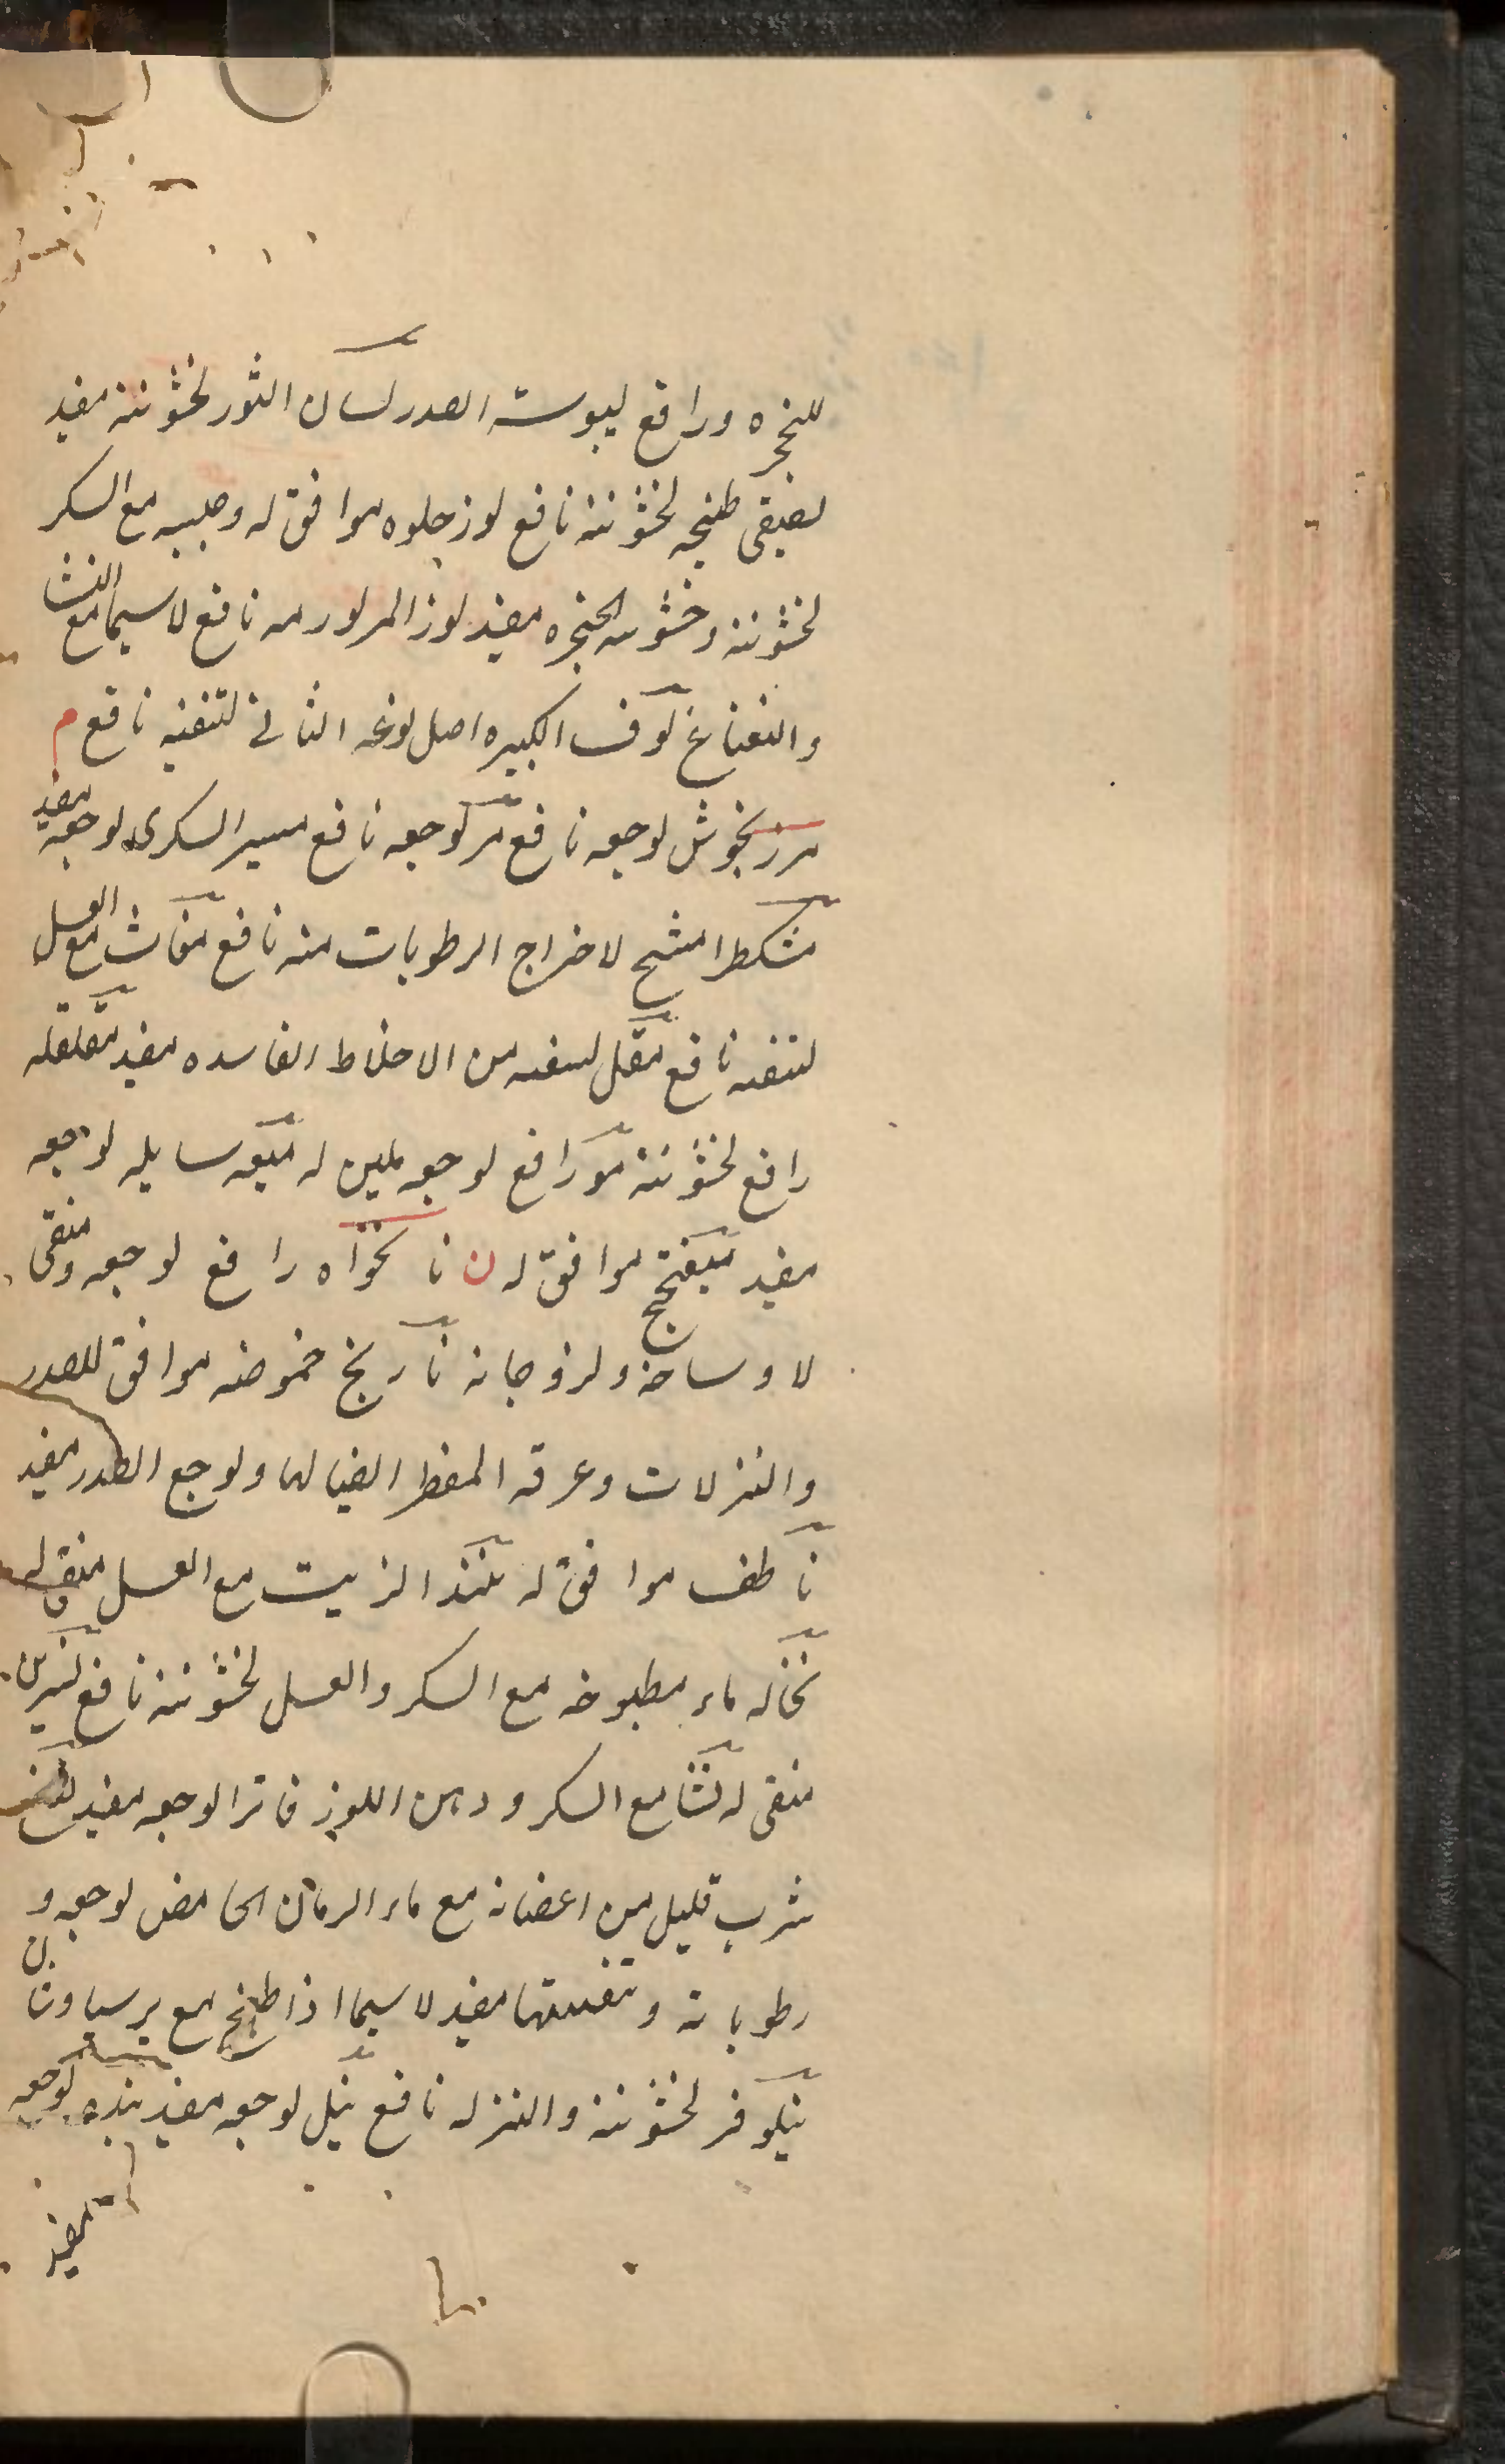 للنجره ورافع ليبوسته الصدر لسان الثور لخشونته مفيد
لضيقى طبخه لخشونته نافع لوز حلوه موافق له وحلبيه مع السكر
لخشونته وخشونه الحنجره مفيد لوز المر لورمه نافع لاسيما مع النشا
والنعناع لوف الكبيره اصل لوغه الثانى لتنقيه نافع م
مرزنجوش لوجعه نافع مر لوجعه نافع مسير السكرى لوجعه مفيد
مشكطرامشيح لاخراج الرطوبات منه نافع مغاث مع العسل
لتنقيه نافع مقل لتنقيه من الاخلاط الفاسده مفيد مقلقله
رافع لخشونته مو رافع لوجعه ملين له ميعه سايله لوجعه
مفيد ميفختج موافق له ن نانخواه رافع لوجعه ومنقى
لاوساخه ولزوجاته نارنج حموضه موافق للصدر
والنزلات وعرقه المقطر ايضا لها ولوجع الصدر مفيد
ناطف موافق له الزيت مع العسل منقى له
نخاله ماء مطبوخه مع السكر والعسل لخشونته نافع نسرين
منقى له نشا مع السكر ودهن اللوز فاترا لوجعه مفيد
شرب قليل من اغصانه مع ماء الرمان الحامض لوجعه و
رطوباته وتنقيتها مفيد لاسيما اذا طبخ مع برسياوشان
نيلوفر لخشونته والنزله نافع نيل لوجعه مفيد لوجعه
مفيد